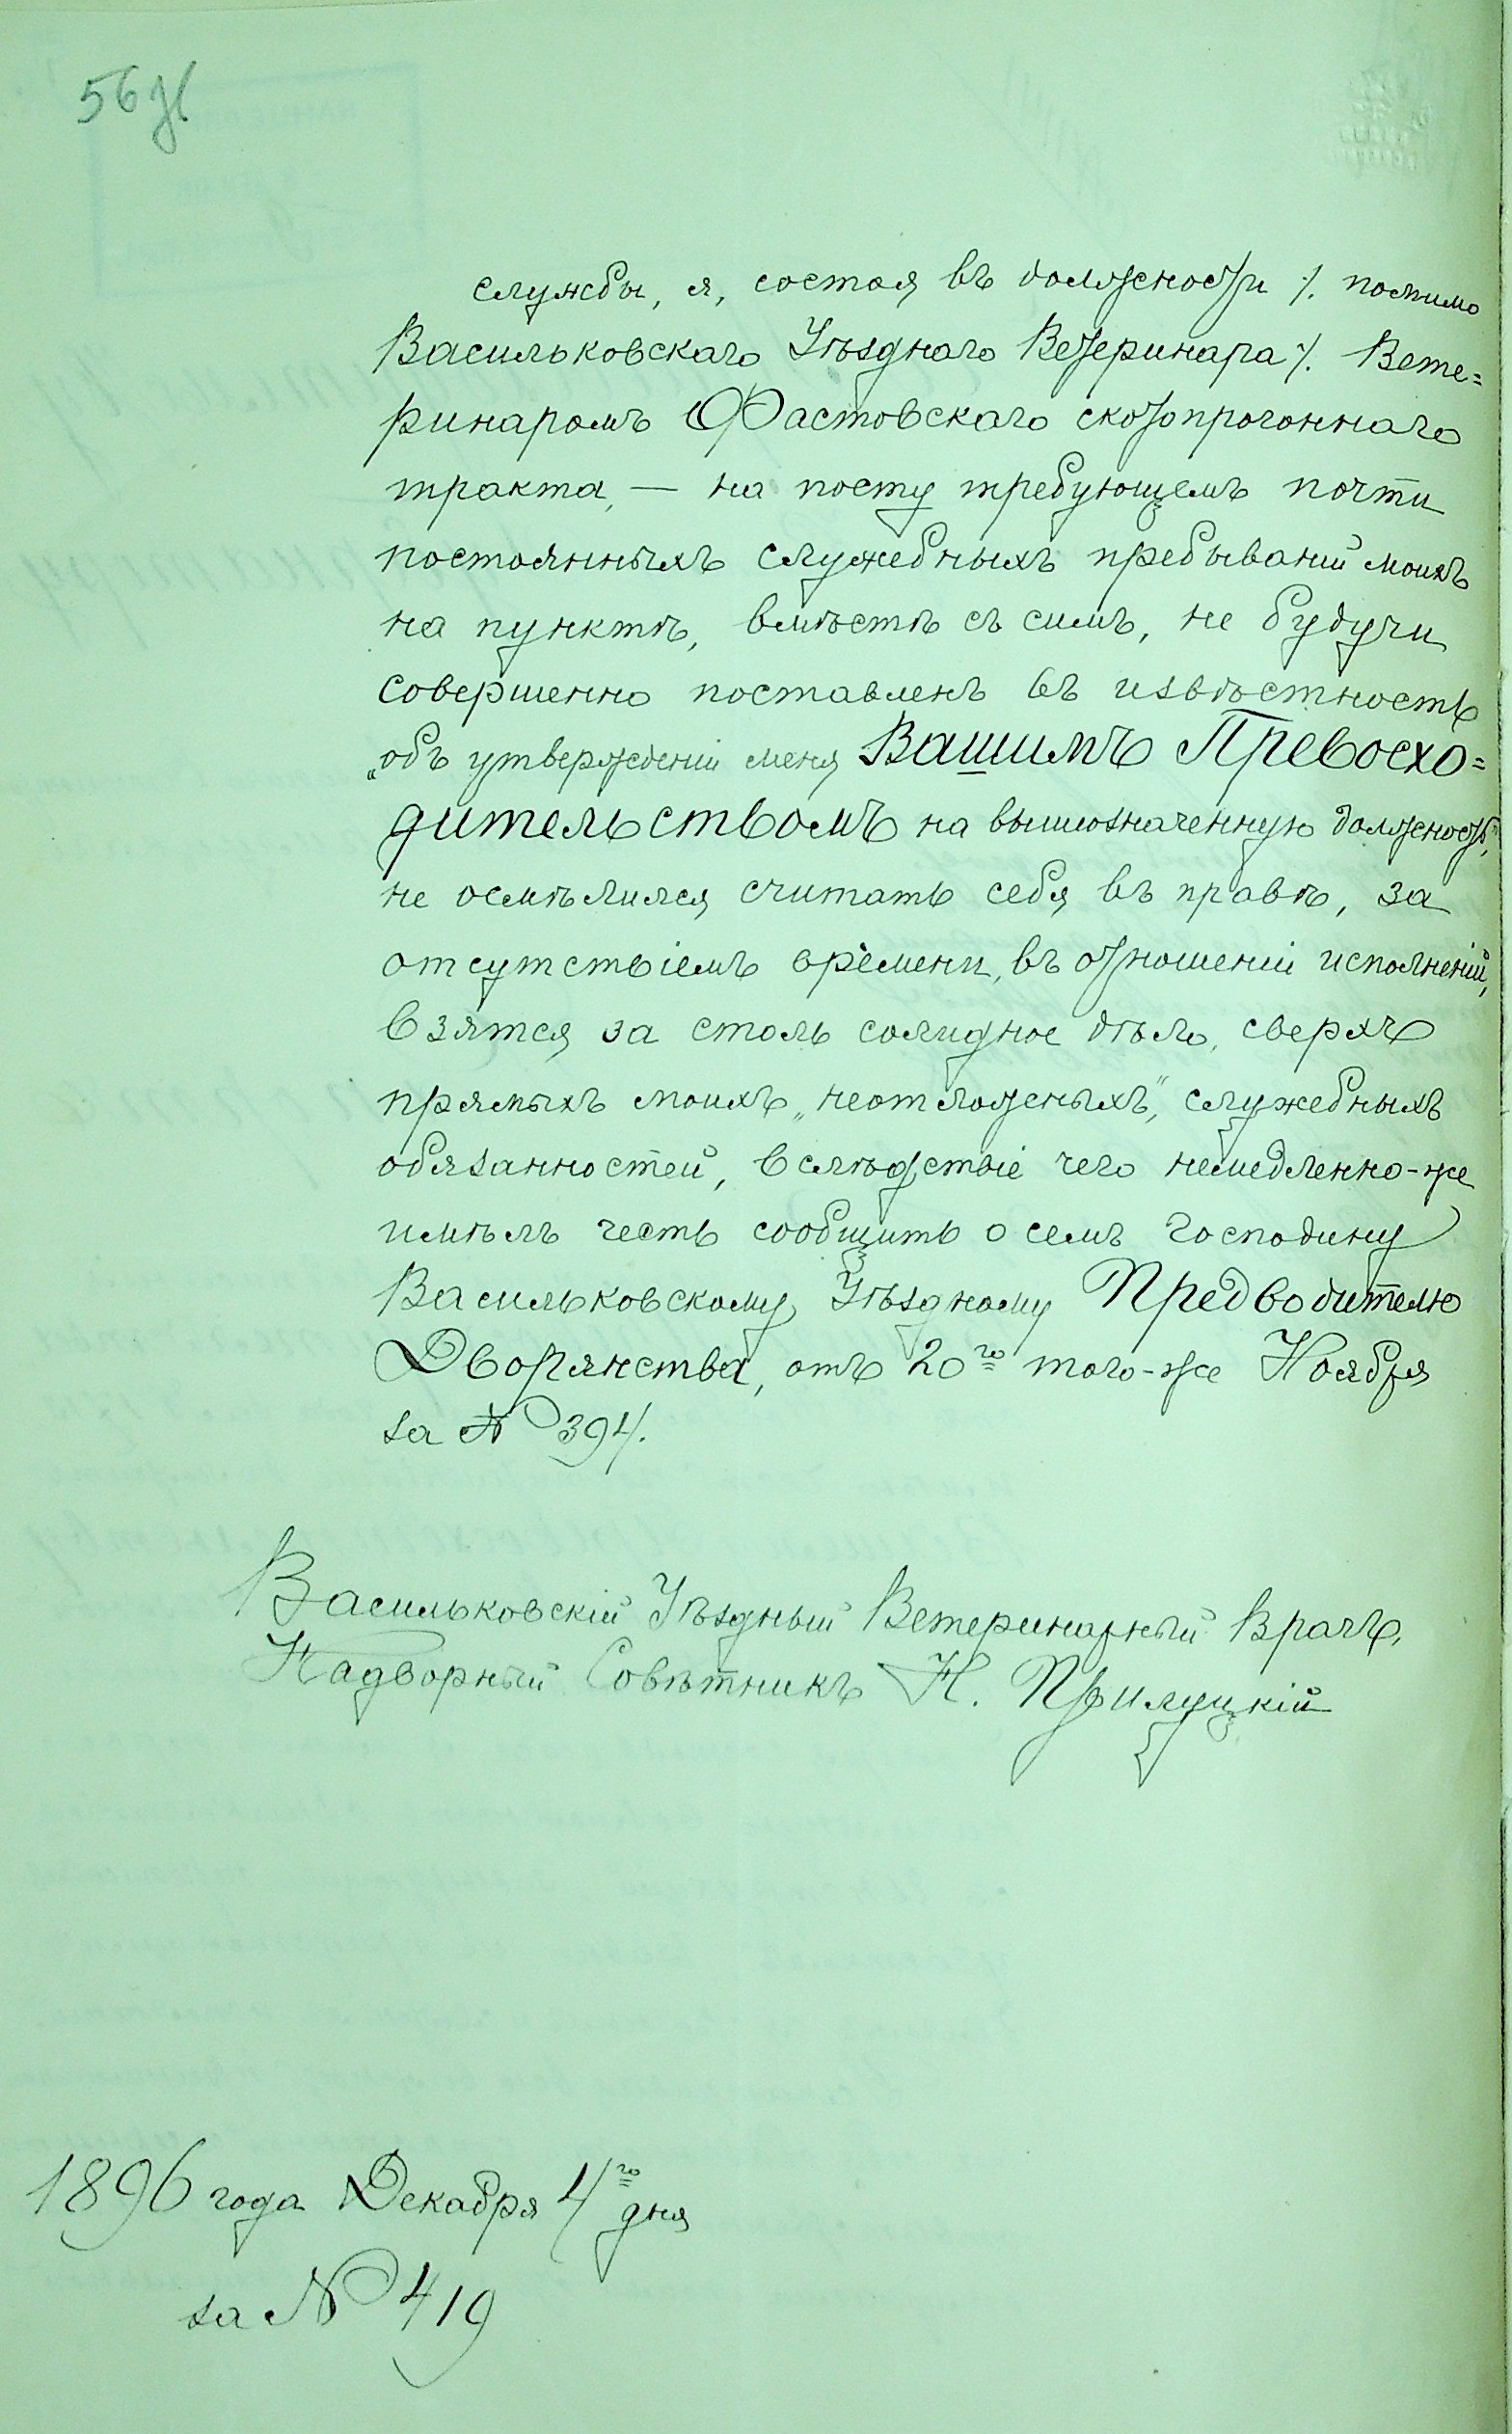 56
службы, я, состоя въ должности ∕. помимо
Васильковскаго Уѣзднаго Ветеринара ∕. Вете=
ринаромъ Фастовскаго скотопрогоннаго
тракта, — на посту требующемъ почти
постоянныхъ служебныхъ пребываній моихъ
на пунктѣ, вмѣстѣ съ симъ, не будучи
совершенно поставленъ въ извѣстность
„объ утвержденіи меня Вашимъ Превосхо=
дительствомъ на вышеозначенную должность,"
не осмѣлился считать себя въ правѣ, за
отсутствіемъ времени, въ отношеніи исполненій,
взятся за столь солидное дѣло, сверхъ
прямыхъ моихъ „неотложныхъ", служебныхъ
обязанностей, вслѣдствіе чего немедленно-же
имѣлъ честь сообщить о семъ Господину
Васильковскому Уѣздному Предводителю
Дворянства, отъ 20го того-же Ноября
за № 394.
Васильковскій Уѣздный Ветеринарный Врачъ,
Надворный Совѣтникъ Н. Прилуцкій
1896 года Декабря 4го дня
за № 419